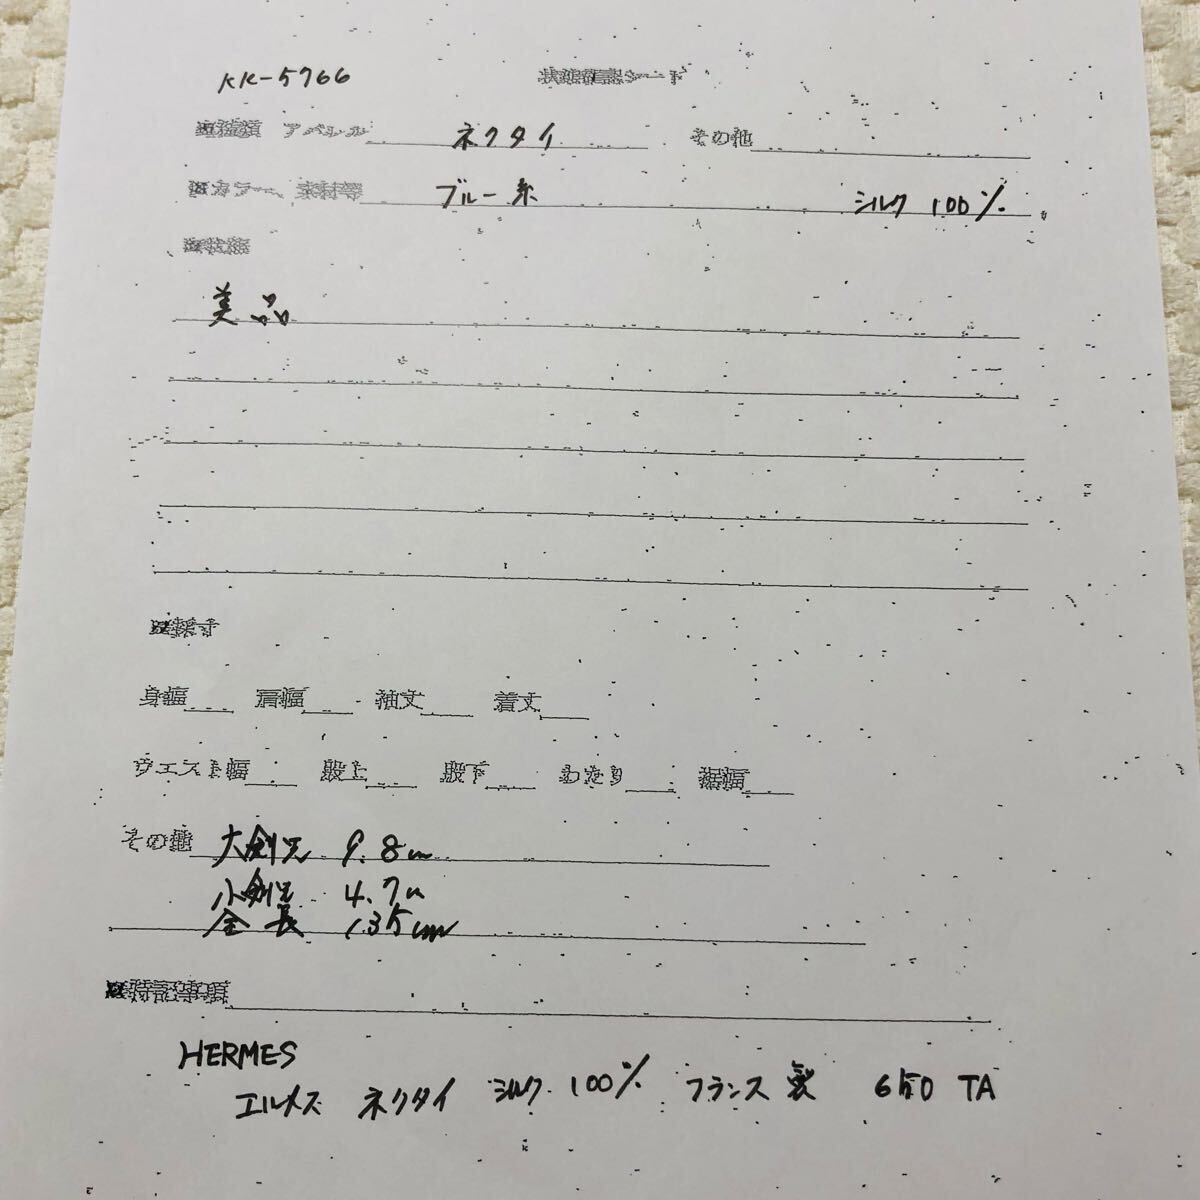 KK-5766 状態確認シート
■種類 アパレル ネクタイ その他
■カラー、素材等 ブルー系 シルク 100%
■状態
美品
■採寸
身幅 肩幅 袖丈 着丈
ウエスト幅 股上 股下 わたり 裾幅
その他 大剣巾 9.8cm
小剣巾 4.7cm
全長 135cm
■特記事項
HERMES
エルメス ネクタイ シルク 100% フランス製 650 TA